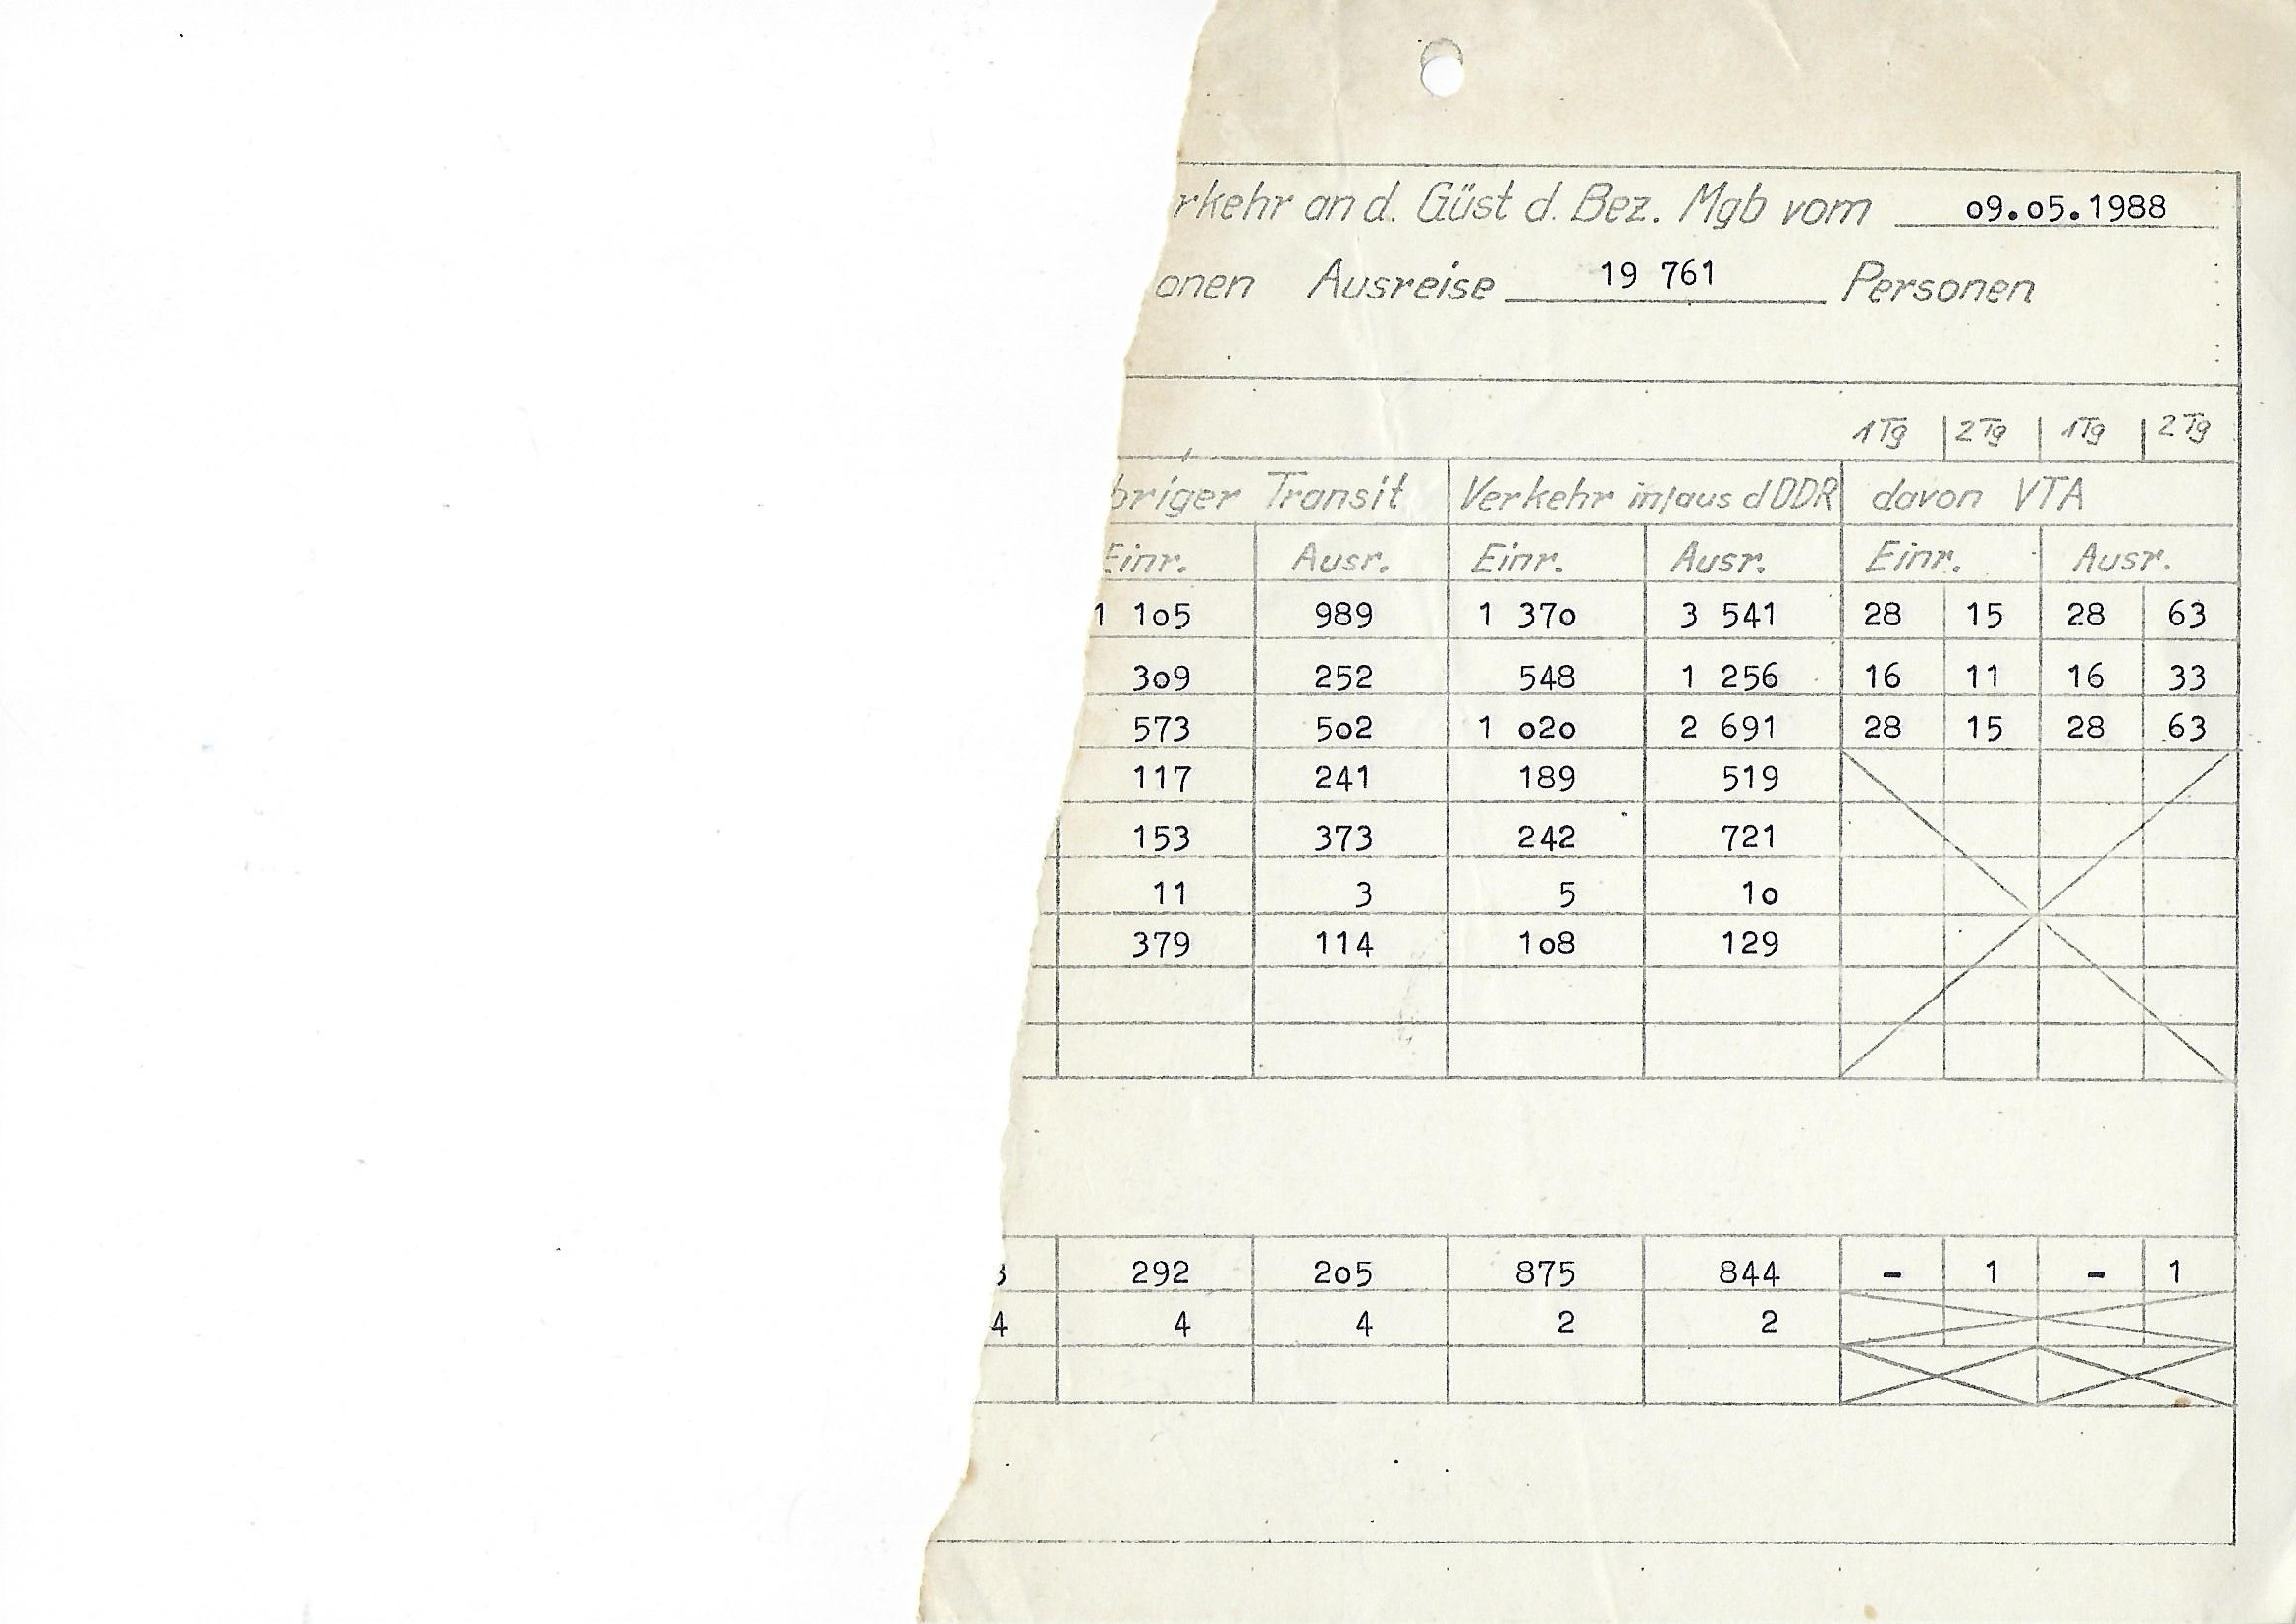 rkehr an d. Güst d. Bez. Mgb vom 09.05.1988
onen Ausreise 19 761 Personen
1Tg 2Tg 1Tg 2Tg
briger Transit Verkehr in/aus d DDR davon VTA
Einr. Ausr. Einr. Ausr. Einr. Ausr.
1 105 989 1 370 3 541 28 15 28 63
309 252 548 1 256 16 11 16 33
573 502 1 020 2 691 28 15 28 63
117 241 189 519
153 373 242 721
11 3 5 10
379 114 108 129
3 292 205 875 844 - 1 - 1
4 4 4 2 2